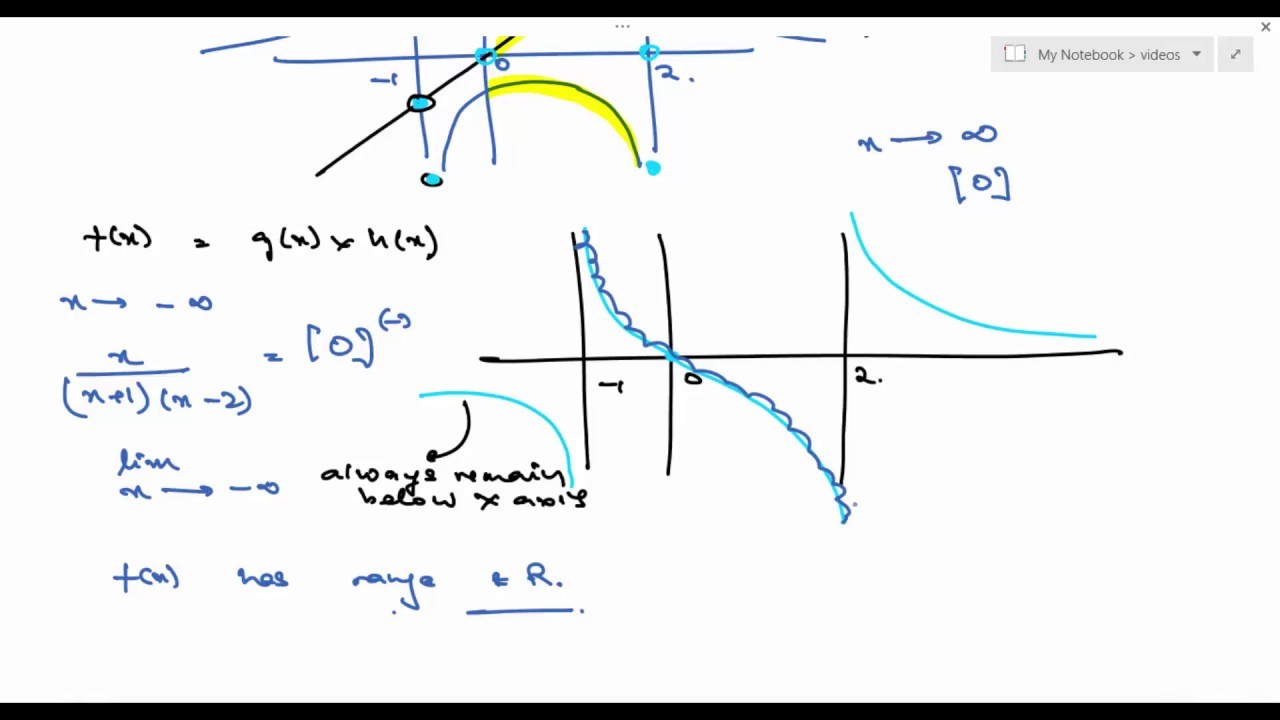 My Notebook > videos
-1 0 2.
x → ∞
[0]
f(x) = g(x) x h(x)
x → - ∞
x / (x+1)(x-2) = [0] (-)
-1 0 2.
lim x → -∞
always remain
below x axis
f(x) has range ∈ R.